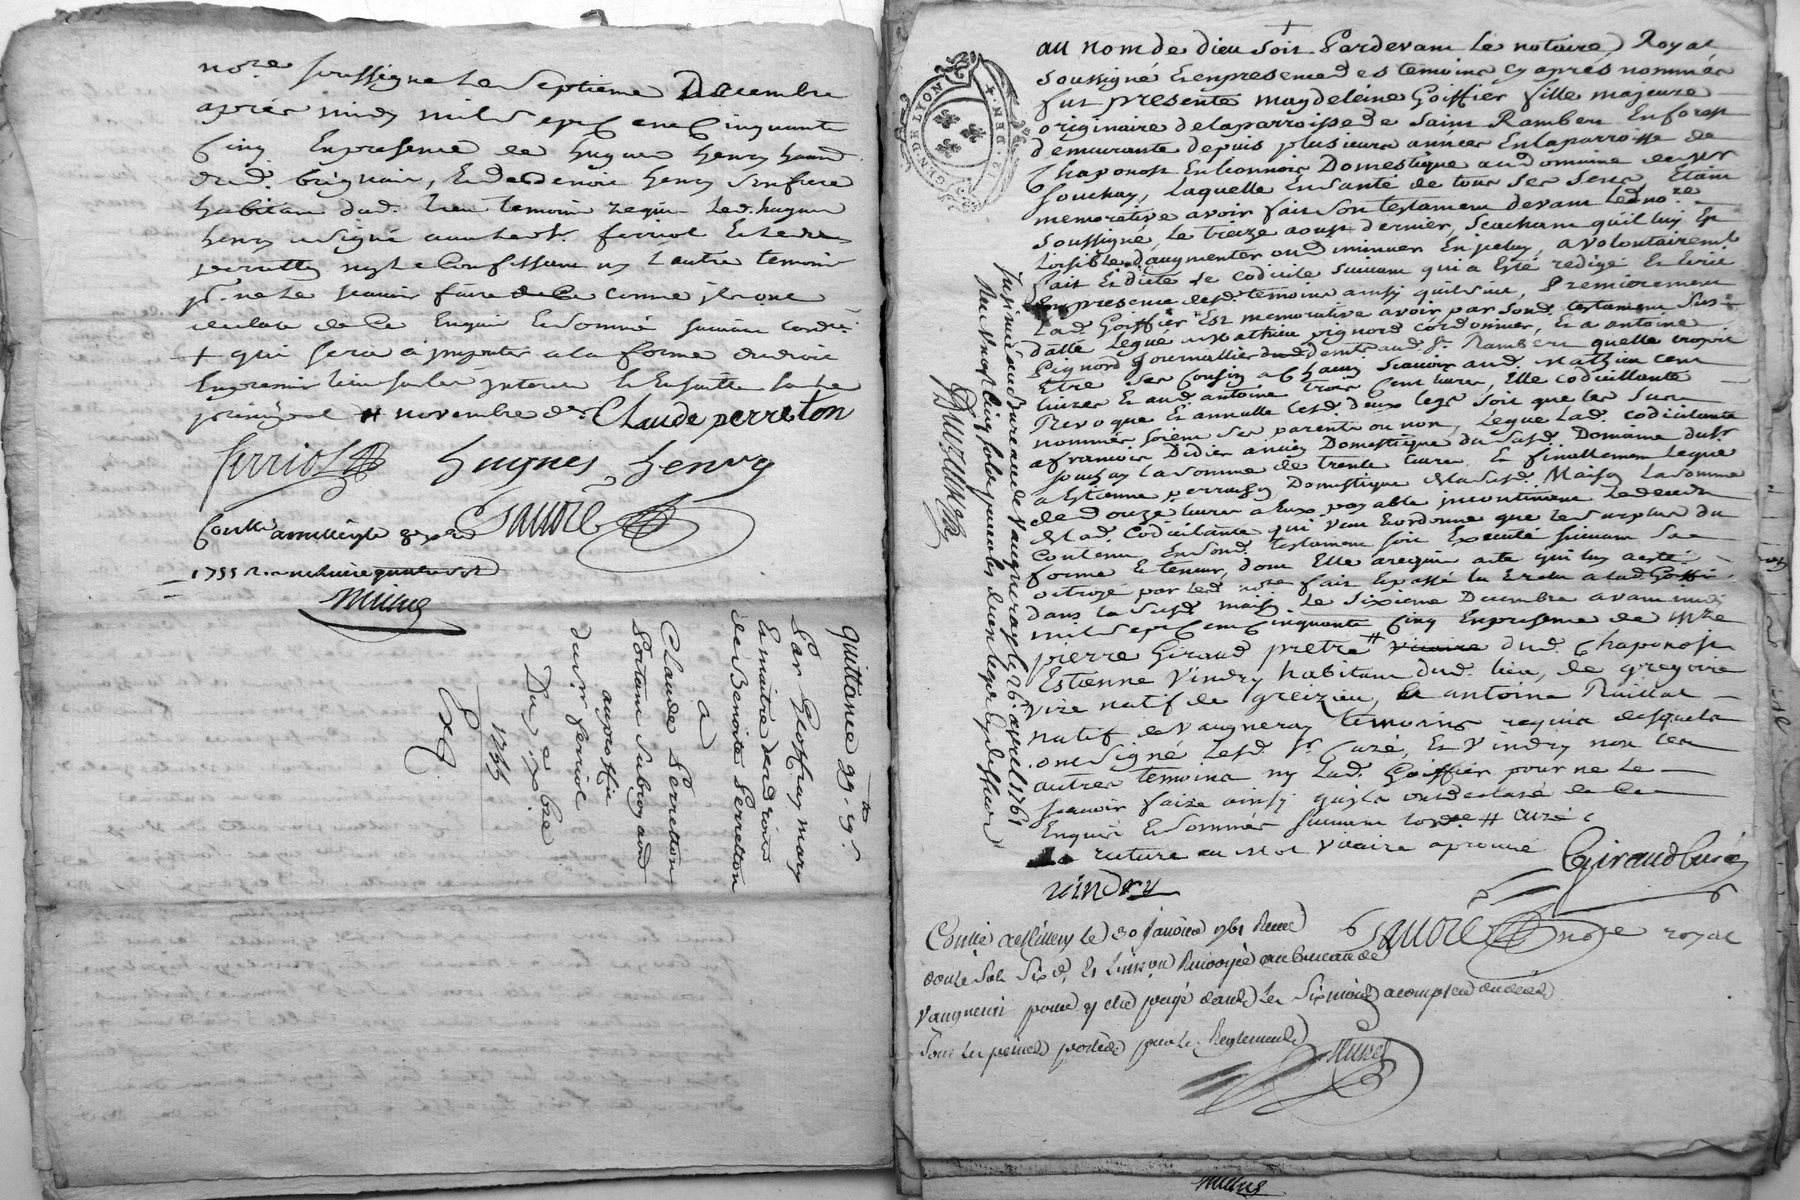 no.re soussigné Le septieme Decembre
apres midy mil sept cent Cinquante
Cinq En presence de hugues henry
dud. Brignais, Et de henry son frere
habitant dud. lieu temoins requis Led. hugues
henry a signé avec led. Sr. ferriol Et led.
perretton ny l'autre temoin
pr. ne le scavoir faire de Ce comme ils ont
declaré de Ce Enquis Et sommé suivant
+ qui sera a imputer a la forme du droit
En premier lieu sur les interets Et Ensuitte sur le
principal # novembre der Claude perreton
ferriol hugues henry
Sauoré
Conllé a
1755
quittance 99.
Par Geoffray mary
Et maitre des droits
de Benoite Perretton
a
Claude Perretton
Portant Subrogation
au profit
du sr. ferriol
Du 7. Xbre
1755
GEN. DE LYON
au nom de dieu soit Pardevant Le notaire Royal
soussigné Et en presence des temoins cy aprés nommés
fut presente magdeleine Goiffier fille majeure
originaire de la parroisse de Saint Rambert En forest
demeurante depuis plusieurs années En la parroisse de
Chaponost En lionnois Domestique au domaine du sr.
souchay, Laquelle En santé de tous ses sens Etant
memorative avoir fait son testament devant Led. no.re
soussigné, Le treize aoust dernier, scachant qu'il luy Est
loisible d'augmenter ou diminuer En iceluy, a volontairemt.
fait Et dicté Le codicile suivant qui a Esté redigé Et Ecrit
En presence desd. temoins ainsy quil suit, Premierement
Lad. Goiffier Est memorative avoir par sond. testament sus
datté legué a Mathieu pignord cordonnier, Et a antoine
Pignord Journallier aud. St. Rambert quelle croyoit
Etre ses Cousins a Chacun scavoir aud. Mathieu cent
livres Et aud. antoine trois cent livres, Elle codicillante
Revoque Et annulle lesd. deux legs soit que les sus
nommés soient ses parents ou non, legue Lad. codicillante
a francois Didier ancien Domestique du susd. Domaine du sr.
souchay La somme de trente livres, Et finallement legue
a Estienne perrachon Domestique de la susd. Maison La somme
de Douze livres a Eux payable incontinent Le decés
de Lad. Codicillante qui veut Et ordonne que le surplus du
Contenu En sond. testament soit Executé suivant sa
forme Et teneur, dont Elle a requis acte qui luy a esté
octroyé par led. no.re fait Et passé lu Et relu a lad. Goiffier
dans la susd. maison Le sixieme Decembre avant midy
mil sept cent cinquante Cinq En presence de M.re
pierre Giraud pretre # vicaire dud. Chaponost
Estienne Vindry habitant dud. lieu, de gregoire
Vire natif de greizieu, Et antoine Ruillat
natif de Vaugneray temoins requis desquels
ont signé Lesd. Sr. Curé, Et Vindry non les
autres temoins ny Lad. Goiffier pour ne le
scavoir faire ainsy qu'ils ont declaré de Ce
Enquis Et sommés suivant lord.ce # Curé
La rature au mot Vicaire aprouvé
Giraud Curé
vindry
Sauoré no.re royal
Conllé a St Genis le 30 janvier 1761 Recu
douze sols six d. Et L'insinuation Renvoyée au bureau de
Vaugneray pour y etre payé dans les six mois a compter du decés
sous les peines portées par les Reglements
Insinué au Bureau de Vaugneray le 26. avril 1761